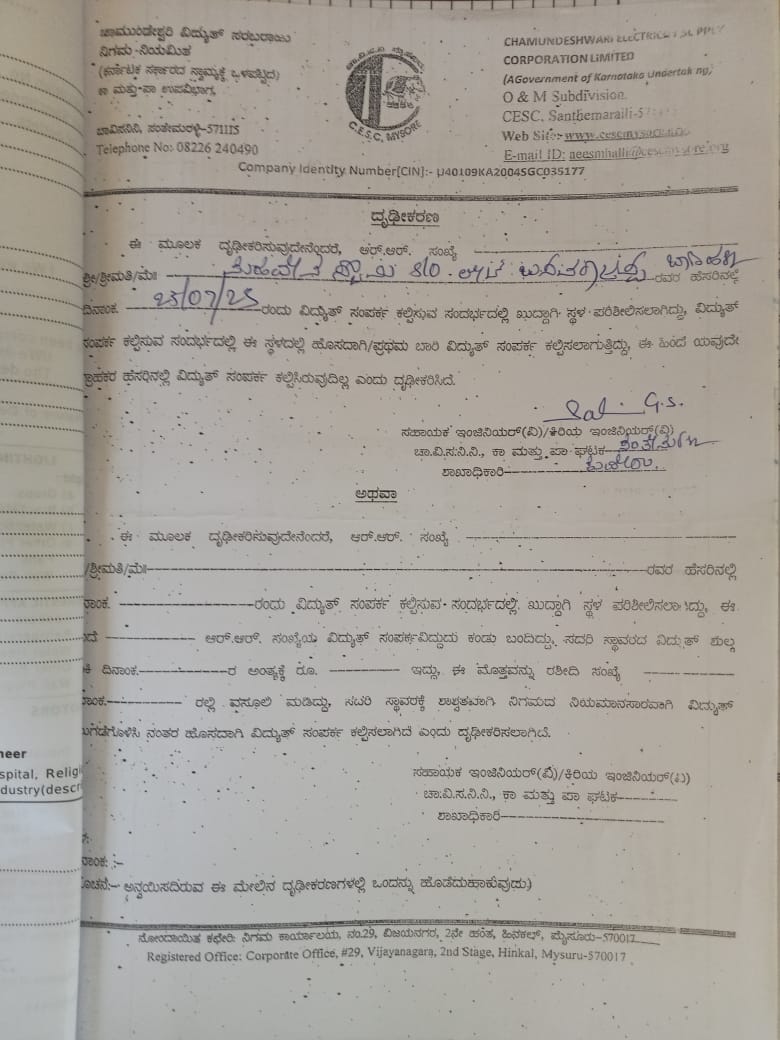 ಚಾಮುಂಡೇಶ್ವರಿ ವಿದ್ಯುತ್ ಸರಬರಾಜು
ನಿಗಮ-ನಿಯಮಿತ
(ಕರ್ನಾಟಕ ಸರ್ಕಾರದ ಸ್ವಾಮ್ಯಕ್ಕೆ ಒಳಪಟ್ಟಿದೆ)
ಕಾ ಮತ್ತು-ಪಾ ಉಪವಿಭಾಗ,
ಚಾವಿಸನಿನಿ, ಸಂತೇಮರಳ್ಳಿ-571115
Telephone No: 08226 240490
C.E.S.C, MYSORE
CHAMUNDESHWARI ELECTRICITY SUPPLY
CORPORATION LIMITED
(AGovernment of Karnataka Undertaking)
O & M Subdivision
CESC, Santhemaralli-5
Web Site:
E-mail ID:
Company Identity Number[CIN]:- U40109KA2004SGC035177
ದೃಢೀಕರಣ
ಈ ಮೂಲಕ ದೃಢೀಕರಿಸುವುದೇನೆಂದರೆ, ಆರ್.ಆರ್. ಸಂಖ್ಯೆ
ಶ್ರೀ/ಶ್ರೀಮತಿ/ಮೆ॥ S/O ರವರ ಹೆಸರಿನಲ್ಲಿ
ದಿನಾಂಕ. 25/07/25 ರಂದು ವಿದ್ಯುತ್ ಸಂಪರ್ಕ ಕಲ್ಪಿಸುವ ಸಂದರ್ಭದಲ್ಲಿ ಖುದ್ದಾಗಿ ಸ್ಥಳ ಪರಿಶೀಲಿಸಲಾಗಿದ್ದು, ವಿದ್ಯುತ್
ಸಂಪರ್ಕ ಕಲ್ಪಿಸುವ ಸಂದರ್ಭದಲ್ಲಿ ಈ ಸ್ಥಳದಲ್ಲಿ ಹೊಸದಾಗಿ/ಪ್ರಥಮ ಬಾರಿ ವಿದ್ಯುತ್ ಸಂಪರ್ಕ ಕಲ್ಪಿಸಲಾಗುತ್ತಿದ್ದು, ಈ ಹಿಂದೆ ಯವುದೇ
ಗ್ರಾಹಕರ ಹೆಸರಿನಲ್ಲಿ ವಿದ್ಯುತ್ ಸಂಪರ್ಕ ಕಲ್ಪಿಸಿರುವುದಿಲ್ಲ ಎಂದು ದೃಢೀಕರಿಸಿದೆ.
G.S.
ಸಹಾಯಕ ಇಂಜಿನಿಯರ್(ವಿ)/ಕಿರಿಯ ಇಂಜಿನಿಯರ್(ವಿ)
ಚಾ.ವಿ.ಸ.ನಿ.ನಿ., ಕಾ ಮತ್ತು ಪಾ ಘಟಕ
ಶಾಖಾಧಿಕಾರಿ
ಅಥವಾ
ಈ ಮೂಲಕ ದೃಢೀಕರಿಸುವುದೇನೆಂದರೆ, ಆರ್.ಆರ್. ಸಂಖ್ಯೆ
/ಶ್ರೀಮತಿ/ಮೆ॥ ರವರ ಹೆಸರಿನಲ್ಲಿ
ನಾಂಕ. ರಂದು ವಿದ್ಯುತ್ ಸಂಪರ್ಕ ಕಲ್ಪಿಸುವ ಸಂದರ್ಭದಲ್ಲಿ ಖುದ್ದಾಗಿ ಸ್ಥಳ ಪರಿಶೀಲಿಸಲಾಗಿದ್ದು, ಈ
ಂದೆ ಆರ್.ಆರ್. ಸಂಖ್ಯೆಯ ವಿದ್ಯುತ್ ಸಂಪರ್ಕವಿದ್ದುದು ಕಂಡು ಬಂದಿದ್ದು, ಸದರಿ ಸ್ಥಾವರದ ವಿದ್ಯುತ್ ಶುಲ್ಕ
ಕಿ ದಿನಾಂಕ. ರ ಅಂತ್ಯಕ್ಕೆ ರೂ. ಇದ್ದು, ಈ ಮೊತ್ತವನ್ನು ರಶೀದಿ ಸಂಖ್ಯೆ
ನಾಂಕ. ರಲ್ಲಿ ವಸೂಲಿ ಮಾಡಿದ್ದು, ಸದರಿ ಸ್ಥಾವರಕ್ಕೆ ಶಾಶ್ವತವಾಗಿ ನಿಗಮದ ನಿಯಮಾನಸಾರವಾಗಿ ವಿದ್ಯುತ್
ಲುಗಡೆಗೊಳಿಸಿ ನಂತರ ಹೊಸದಾಗಿ ವಿದ್ಯುತ್ ಸಂಪರ್ಕ ಕಲ್ಪಿಸಲಾಗಿದೆ ಎಂದು ದೃಢೀಕರಿಸಲಾಗಿದೆ.
ಸಹಾಯಕ ಇಂಜಿನಿಯರ್(ವಿ)/ಕಿರಿಯ ಇಂಜಿನಿಯರ್(ವಿ)
ಚಾ.ವಿ.ಸ.ನಿ.ನಿ., ಕಾ ಮತ್ತು ಪಾ ಘಟಕ
ಶಾಖಾಧಿಕಾರಿ
ನಾಂಕ: :-
ೂಚನೆ:- ಅನ್ವಯಿಸದಿರುವ ಈ ಮೇಲಿನ ದೃಢೀಕರಣಗಳಲ್ಲಿ ಒಂದನ್ನು ಹೊಡೆದುಹಾಕುವುದು)
ನೋಂದಾಯಿತ ಕಛೇರಿ: ನಿಗಮ ಕಾರ್ಯಾಲಯ, ನಂ.29, ವಿಜಯನಗರ, 2ನೇ ಹಂತ, ಹಿನಕಲ್, ಮೈಸೂರು-570017
Registered Office: Corporate Office, #29, Vijayanagara, 2nd Stage, Hinkal, Mysuru-570017
neer
spital, Relig
dustry(desc